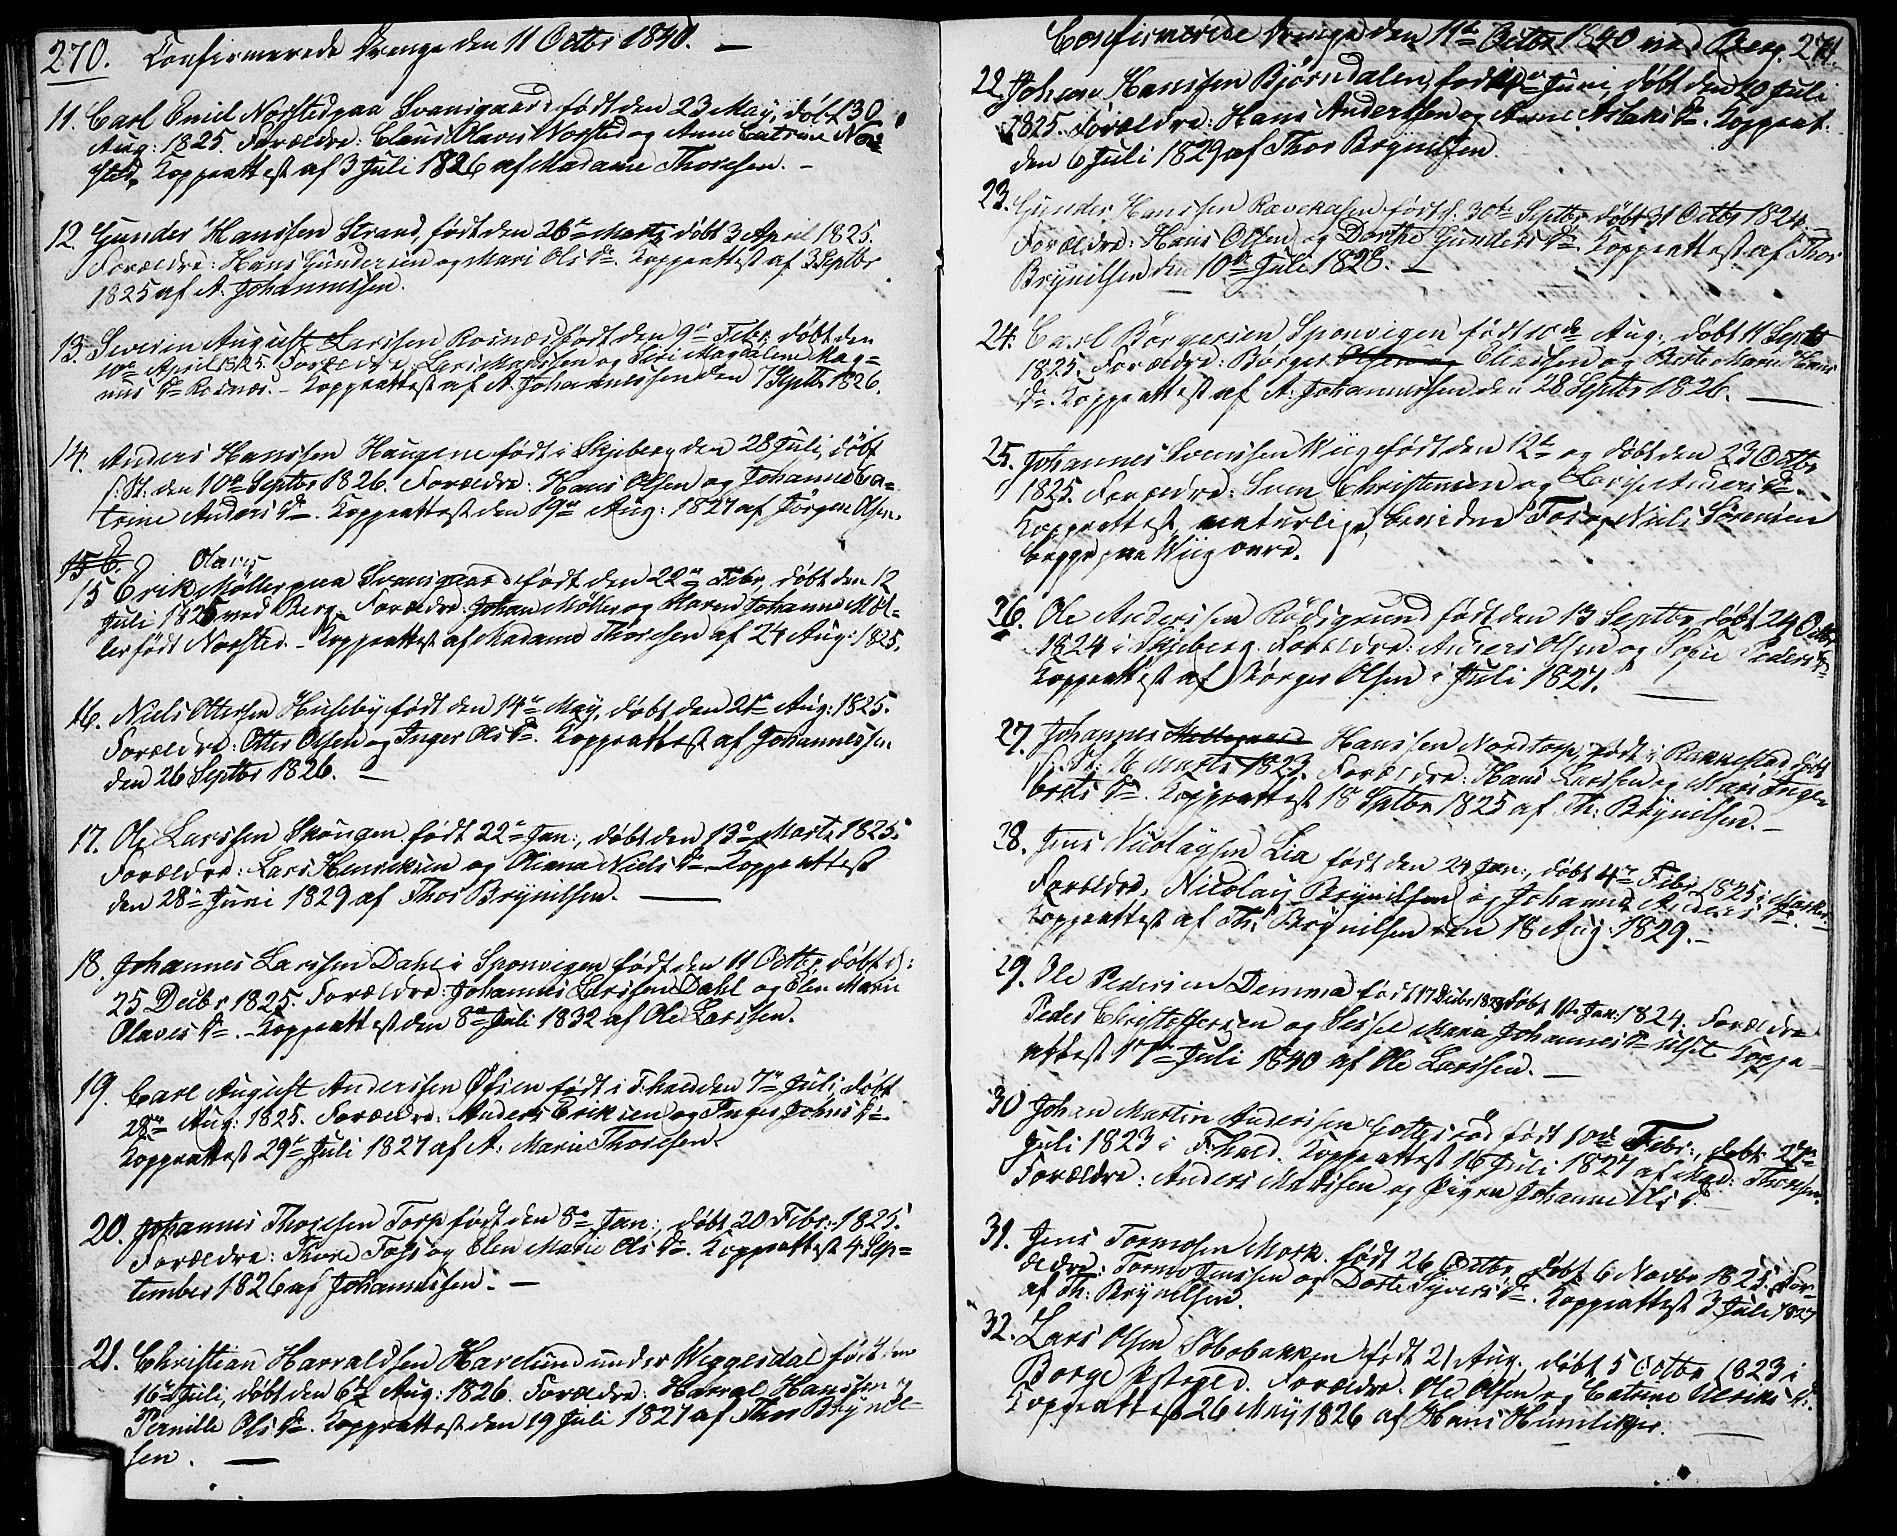 270. Confirmerede Drenge den 11 Octbr 1840. —
11. Carl Emil Norsted paa Svansgaard født den 23 May, døbt 30
Aug: 1825. Forældre: Claus Olaves Norsted og Anne Catrine Nor-
sted. Koppeattest af 3 Juli 1826 af Madame Thoresen. –
12. Gunder Hanssen Strand, født den 26de Marts, døbt 3 April 1825.
Forældre: Hans Gundersen og Mari Ols Dr. Koppeattest af 3 Septbr
1825 af A. Johannessen.
13. Severin August Larssen Rosnæs født den 9de Febr, døbt den
10de April 1825. Forældre: Lars Madssen og Siri Magdalene Mag-
nus Dr Rosnæs. – Koppeattest af A. Johannessen den 7 Septbr 1826.
14. Anders Hanssen Haugene født i Skjeberg den 28 Juli, døbt
s. St. den 10de Septbr 1826. Forældre: Hans Olsen og Johanne Ca-
trine Anders Dr. Koppeattest den 19de Aug: 1827 af Jørgen Olsen.
15 b.
Olaves
15 Erik Møller paa Svansgaard født den 22de Febr, døbt den 12
Juli 1825 ved Berg. Forældre: Johan Møller og Maren Johanne Møl-
ler født Norsted. – Koppeattest af Madame Thoresen af 24 Aug: 1825.
16. Niels Ottersen Huseby født den 14de May, døbt den 21de Aug: 1825.
Forældre: Otter Olsen og Inger Ols Dr. Koppeattest af Johannessen
den 26 Septbr 1826. —
17. Ole Larssen Skougen født 22de Jan:, døbt den 13de Marts 1825.
Forældre: Lars Henriksen og Oleana Niels Dr. Koppeattest
den 28de Juni 1829 af Thor Brynilsen. —
18. Johannes Larssen Dahl i Sponvigen født den 11 Octbr, døbt d:
25 Decbr 1825. Forældre: Johannes Larssen Dahl og Elen Marie
Olaves Dr. – Koppeattest den 8de Juli 1832 af Ole Larssen.
19. Carl August Anderssen Øssen født i F.hald den 7de Juli, døbt
28de Aug: 1825. Forældre: Anders Eriksen og Inger Johns Dr.
Koppeattest 29de Juli 1827 af A: Marie Thoresen.
20. Johannes Thoresen Torp født den 8de Jan:, døbt 20 Febr: 1825.
Forældre: Thore Tofs og Elen Marie Ols Dr. Koppeattest 4 Sep-
tember 1826 af Johannessen. —
21. Christian Harraldsen Harelund under Weggesdal født den
16de Juli, døbt den 6de Aug: 1826. Forældre: Harral Hanssen og
Pernille Ols Dr. Koppeattest den 19 Juli 1827 af Thor Brynil-
sen. —
Confirmerede Drenge den 11te Octbr 1840 ved Berg. 271.
22. Johan Hanssen Bjørndalen, født 4de Juni, døbt den 10 Juli
1825. Forældre: Hans Anderssen og Anne Aslaks Dr. Koppeat.
den 6 Juli 1829 af Thor Brynilsen.
23. Gunder Hanssen Rævekasen født d. 30te Septbr døbt 31 Octbr 1824.
Forældre: Hans Olsen og Dorthe Gunders Dr. Koppeattest af Thor
Brynilsen den 10de Juli 1828. —
24. Carl Børgersen Sponvigen født 10de Aug:, døbt 11 Septbr
1825. Forældre: Børger Olsen og Eliassen og Berte Marie Hans
Dr. Koppeattest af A: Johannessen den 28 Septbr 1826. —
25. Johannes Svenssen Wiig født den 12te og døbt den 23 Octbr
1825. Forældre: Sven Christensen og Lovise Anders Dr.
Koppeattest, naturlige, bevidne Tor og Niels Sørensen
begge paa Wiig vare.
26. Ole Anderssen Rødsgrund født den 13 Septbr, døbt 24 Octbr
1824 i Skjeberg. Forældre: Anders Olsen og Sofie Peders Dr.
Koppeattest af Børger Olsen i Juli 1827. —
27. Johannes Hanssen Nordtorp, født i Rakkestad, døbt
s. St. 16 Marts 1823. Forældre: Hans Larssen og Mari Inge-
brets Dr. Koppeattest 18 Septbr 1825 af Th: Brynilsen. –
28. Jens Nicolaysen Lia født den 29 Jan:, døbt 4de Febr 1825 i Marker.
Forældre. Nicolay Brynilsen og Johanne Anders Dr. –
Koppeattest af Th: Brynilsen den 18 Aug: 1829. –
29. Ole Pedersen Demma født 17 Decbr 1823 døbt 1ste Jan: 1824. Forældre
Peder Christoffersen og Sissel Maria Johannes Dr Koppe-
attest 17de Juli 1840 af Ole Larssen. —
30 Johan Martin Anderssen født 10de Febr:, døbt 27de
Juli 1823 i F.hald. Koppeattest 16 Juli 1827 af Mad: Thoresen.
Forældre: Anders Madssen og Johanne Ols Dr. –
31. Jens Tormosen Mork. født 26 Octbr, døbt 6 Novbr 1825. For-
ældre: Tormo Jenssen og Dorte Syvers Dr. Koppeattest 3 Juli 1827
af Th: Brynilsen.
32. Lars Olsen Søbobakken født 21 Aug., døbt 5 Octbr 1823 i
Borge Pstegd. Forældre. Ole Olsen og Catrine Ulriks Dr.
Koppeattest 26 May 1826 af Hans